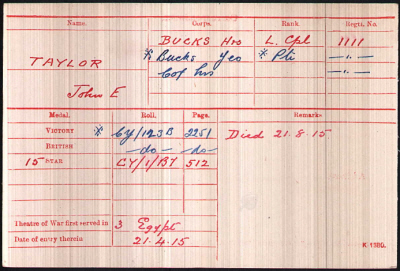 Name. Corps. Rank. Regtl. No.
BUCKS Hrs L. Cpl 1111
TAYLOR * Bucks Yeo * Pte —"—
John E Cof Hrs —"—
Medal. Roll. Page. Remarks
VICTORY * CY/123B 2251 Died 21.8.15
BRITISH —do— —do—
15 STAR CY/1/B7 512
Theatre of War first served in 3 Egypt
Date of entry therein 21.4.15
K 1380.